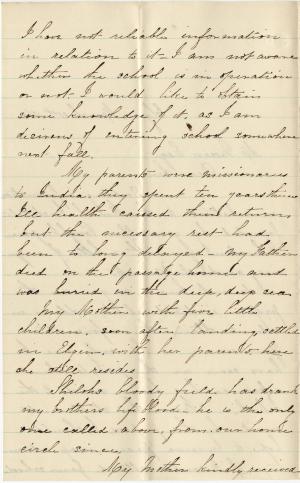 I have not reliable information
in relation to it - I am not aware
whether the school is in operation
or not - I would like to obtain
some knowledge of it, as I am
desirous of entering school somewhere
next fall.
My parents were missionaries
to India, they spent ten years there
Ill health caused their return,
but the necessary rest had
been to long delayed - my Father
died on the passage home and
was burried in the deep, deep sea
My Mother with five little
children, soon after landing, settled
in Elgin, with her parents, here
she still resides.
Shilohs bloody field has drank
my brothers life blood - he is the only
one called above, from our home
circle since,
My Mother kindly received